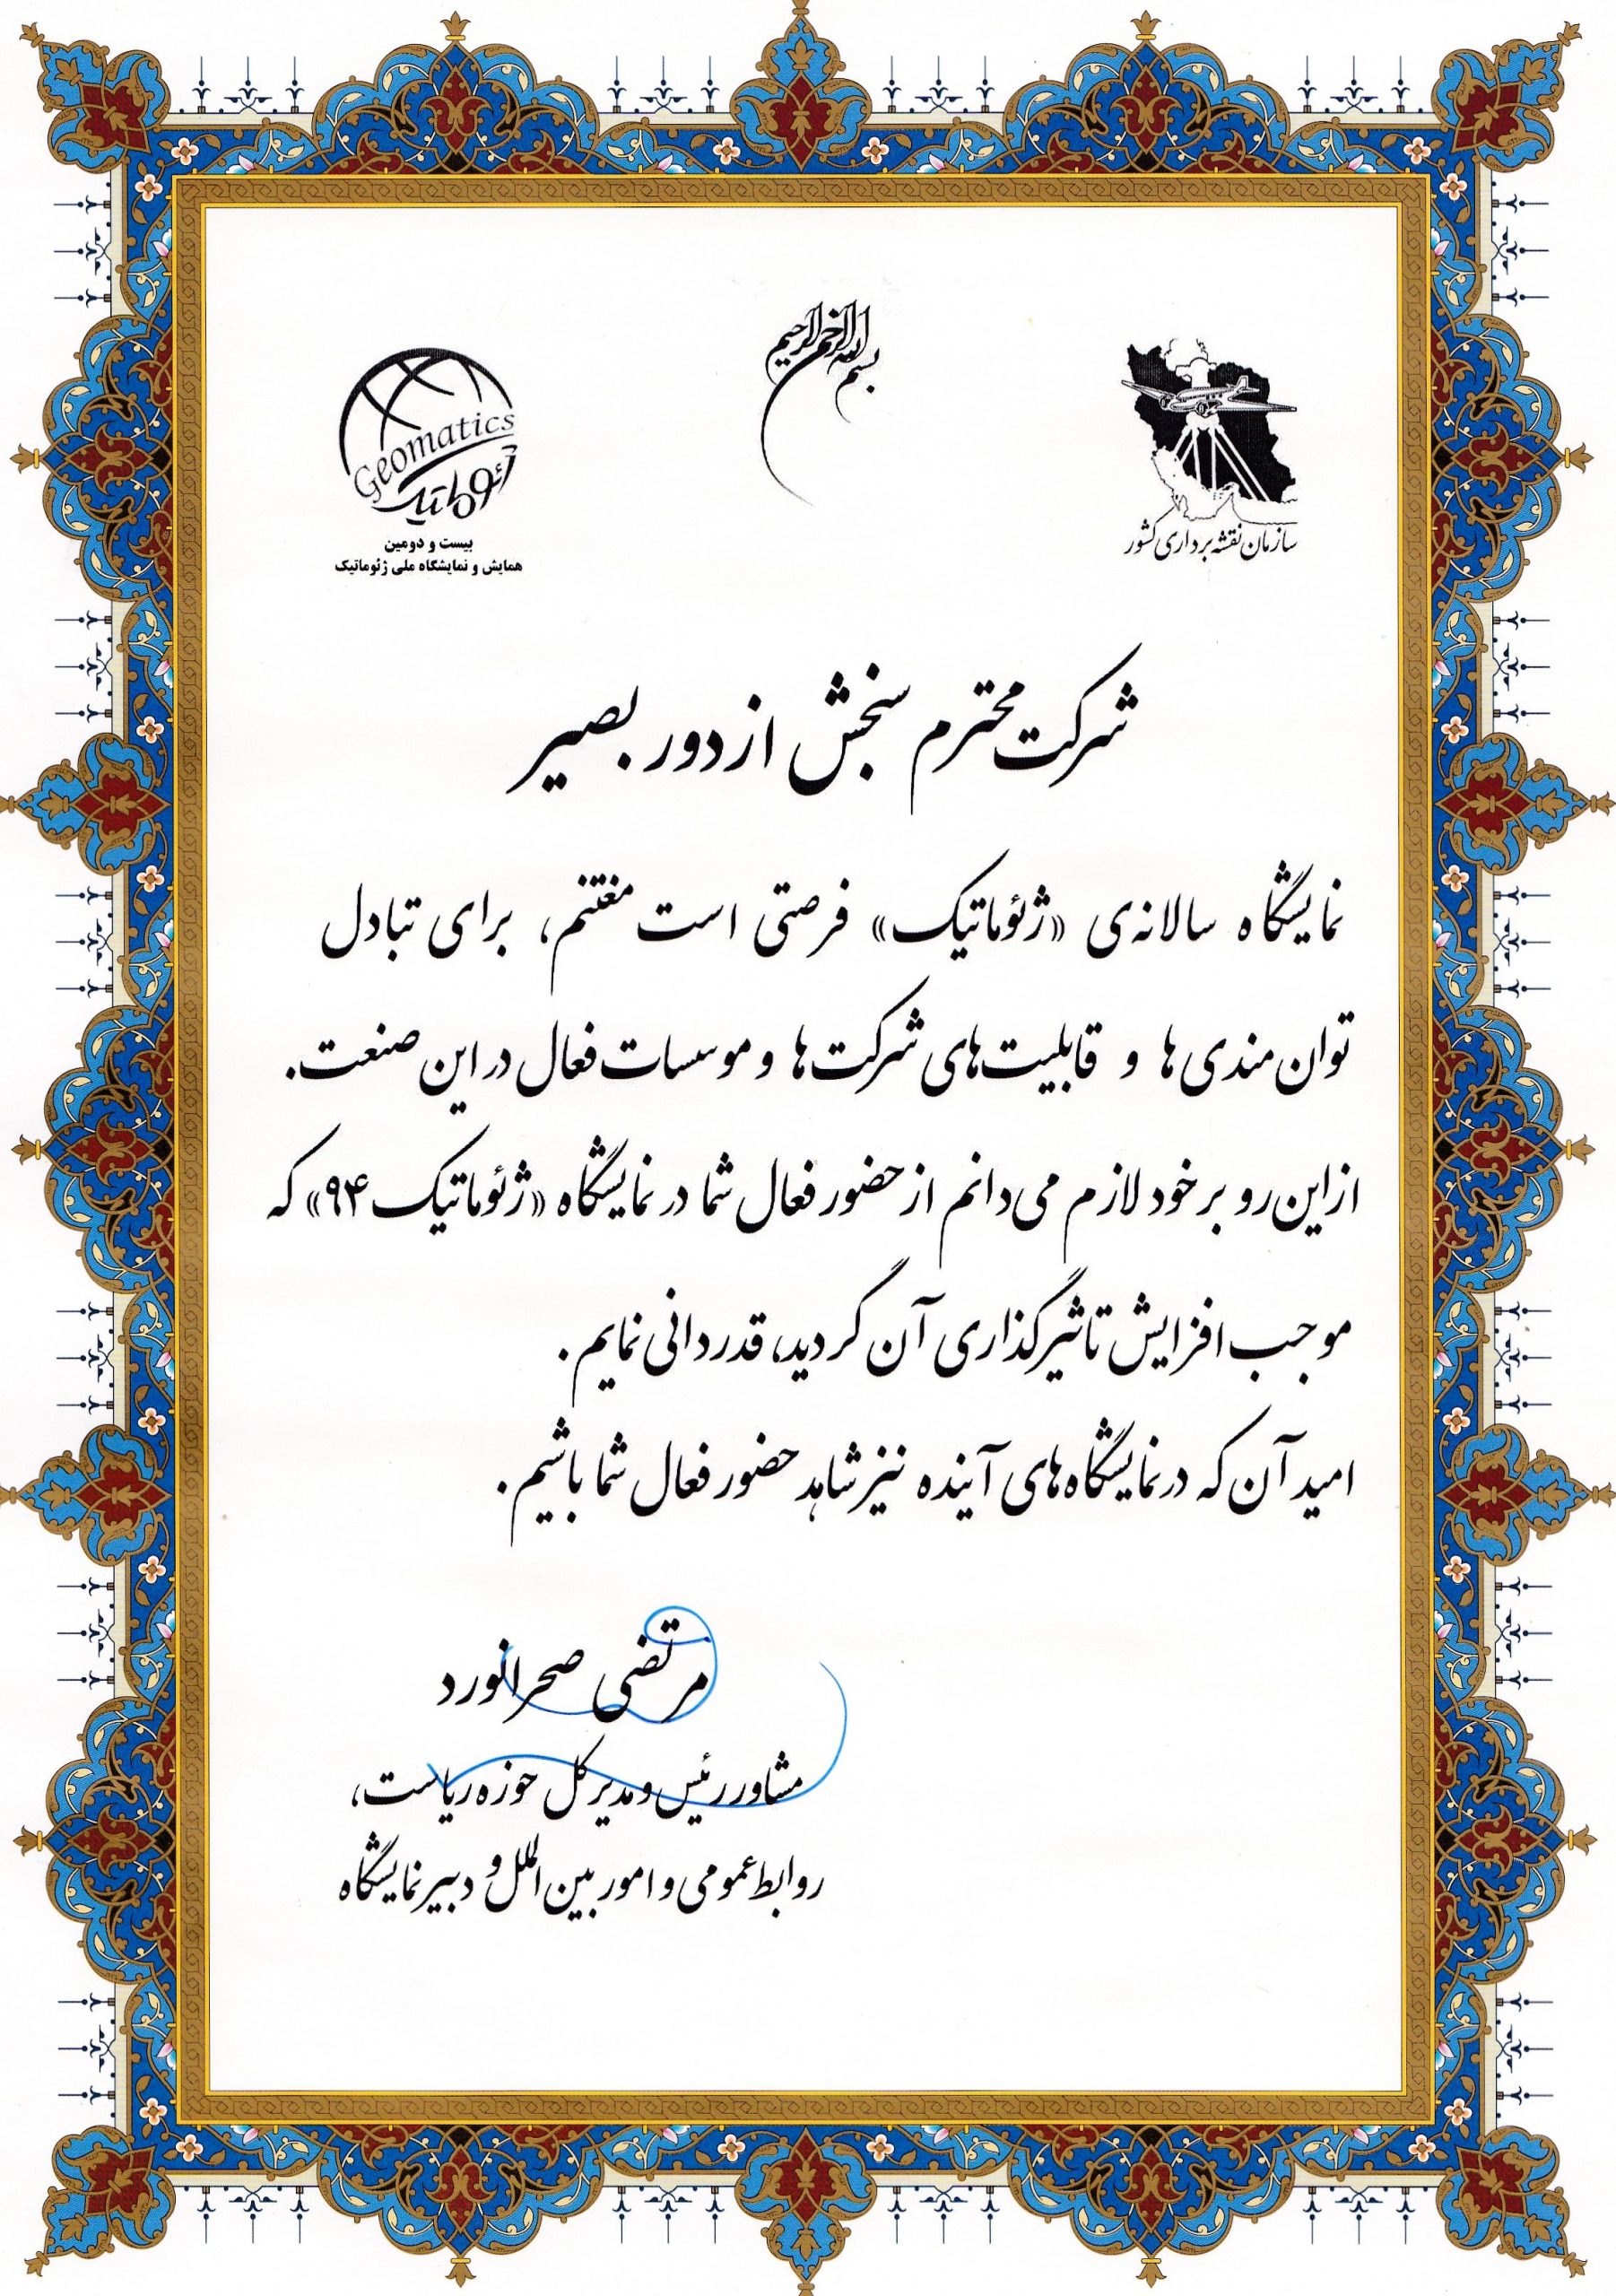 بسم الله الرحمن الرحیم
سازمان نقشه برداری کشور
Geomatics
ژئوماتیک
بیست و دومین
همایش و نمایشگاه ملی ژئوماتیک
شرکت محترم سنجش از دور بصیر
نمایشگاه سالانه‌ی «ژئوماتیک» فرصتی است مغتنم، برای تبادل
توان‌مندی‌ها و قابلیت‌های شرکت‌ها و موسسات فعال در این صنعت.
از این رو بر خود لازم می‌دانم از حضور فعال شما در نمایشگاه «ژئوماتیک ۹۴» که
موجب افزایش تاثیرگذاری آن گردید، قدردانی نمایم.
امید آن که در نمایشگاه‌های آینده نیز شاهد حضور فعال شما باشیم.
مرتضی صحرانورد
مشاور رئیس و مدیر کل حوزه ریاست،
روابط عمومی و امور بین الملل و دبیر نمایشگاه